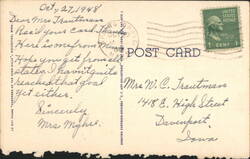 Oct 27, 1948
Dear Mrs Trautman
Rec'd your Card. Thanks
Here is one from Minn.
Hope you get from all
states. I haven't quite
reached that goal
yet either.
Sincerely
Mrs Myhre.
POST CARD
UNITED STATES
1 CENT 1
Mrs W.C. Trautman
418 E. High Street
Davenport,
Iowa